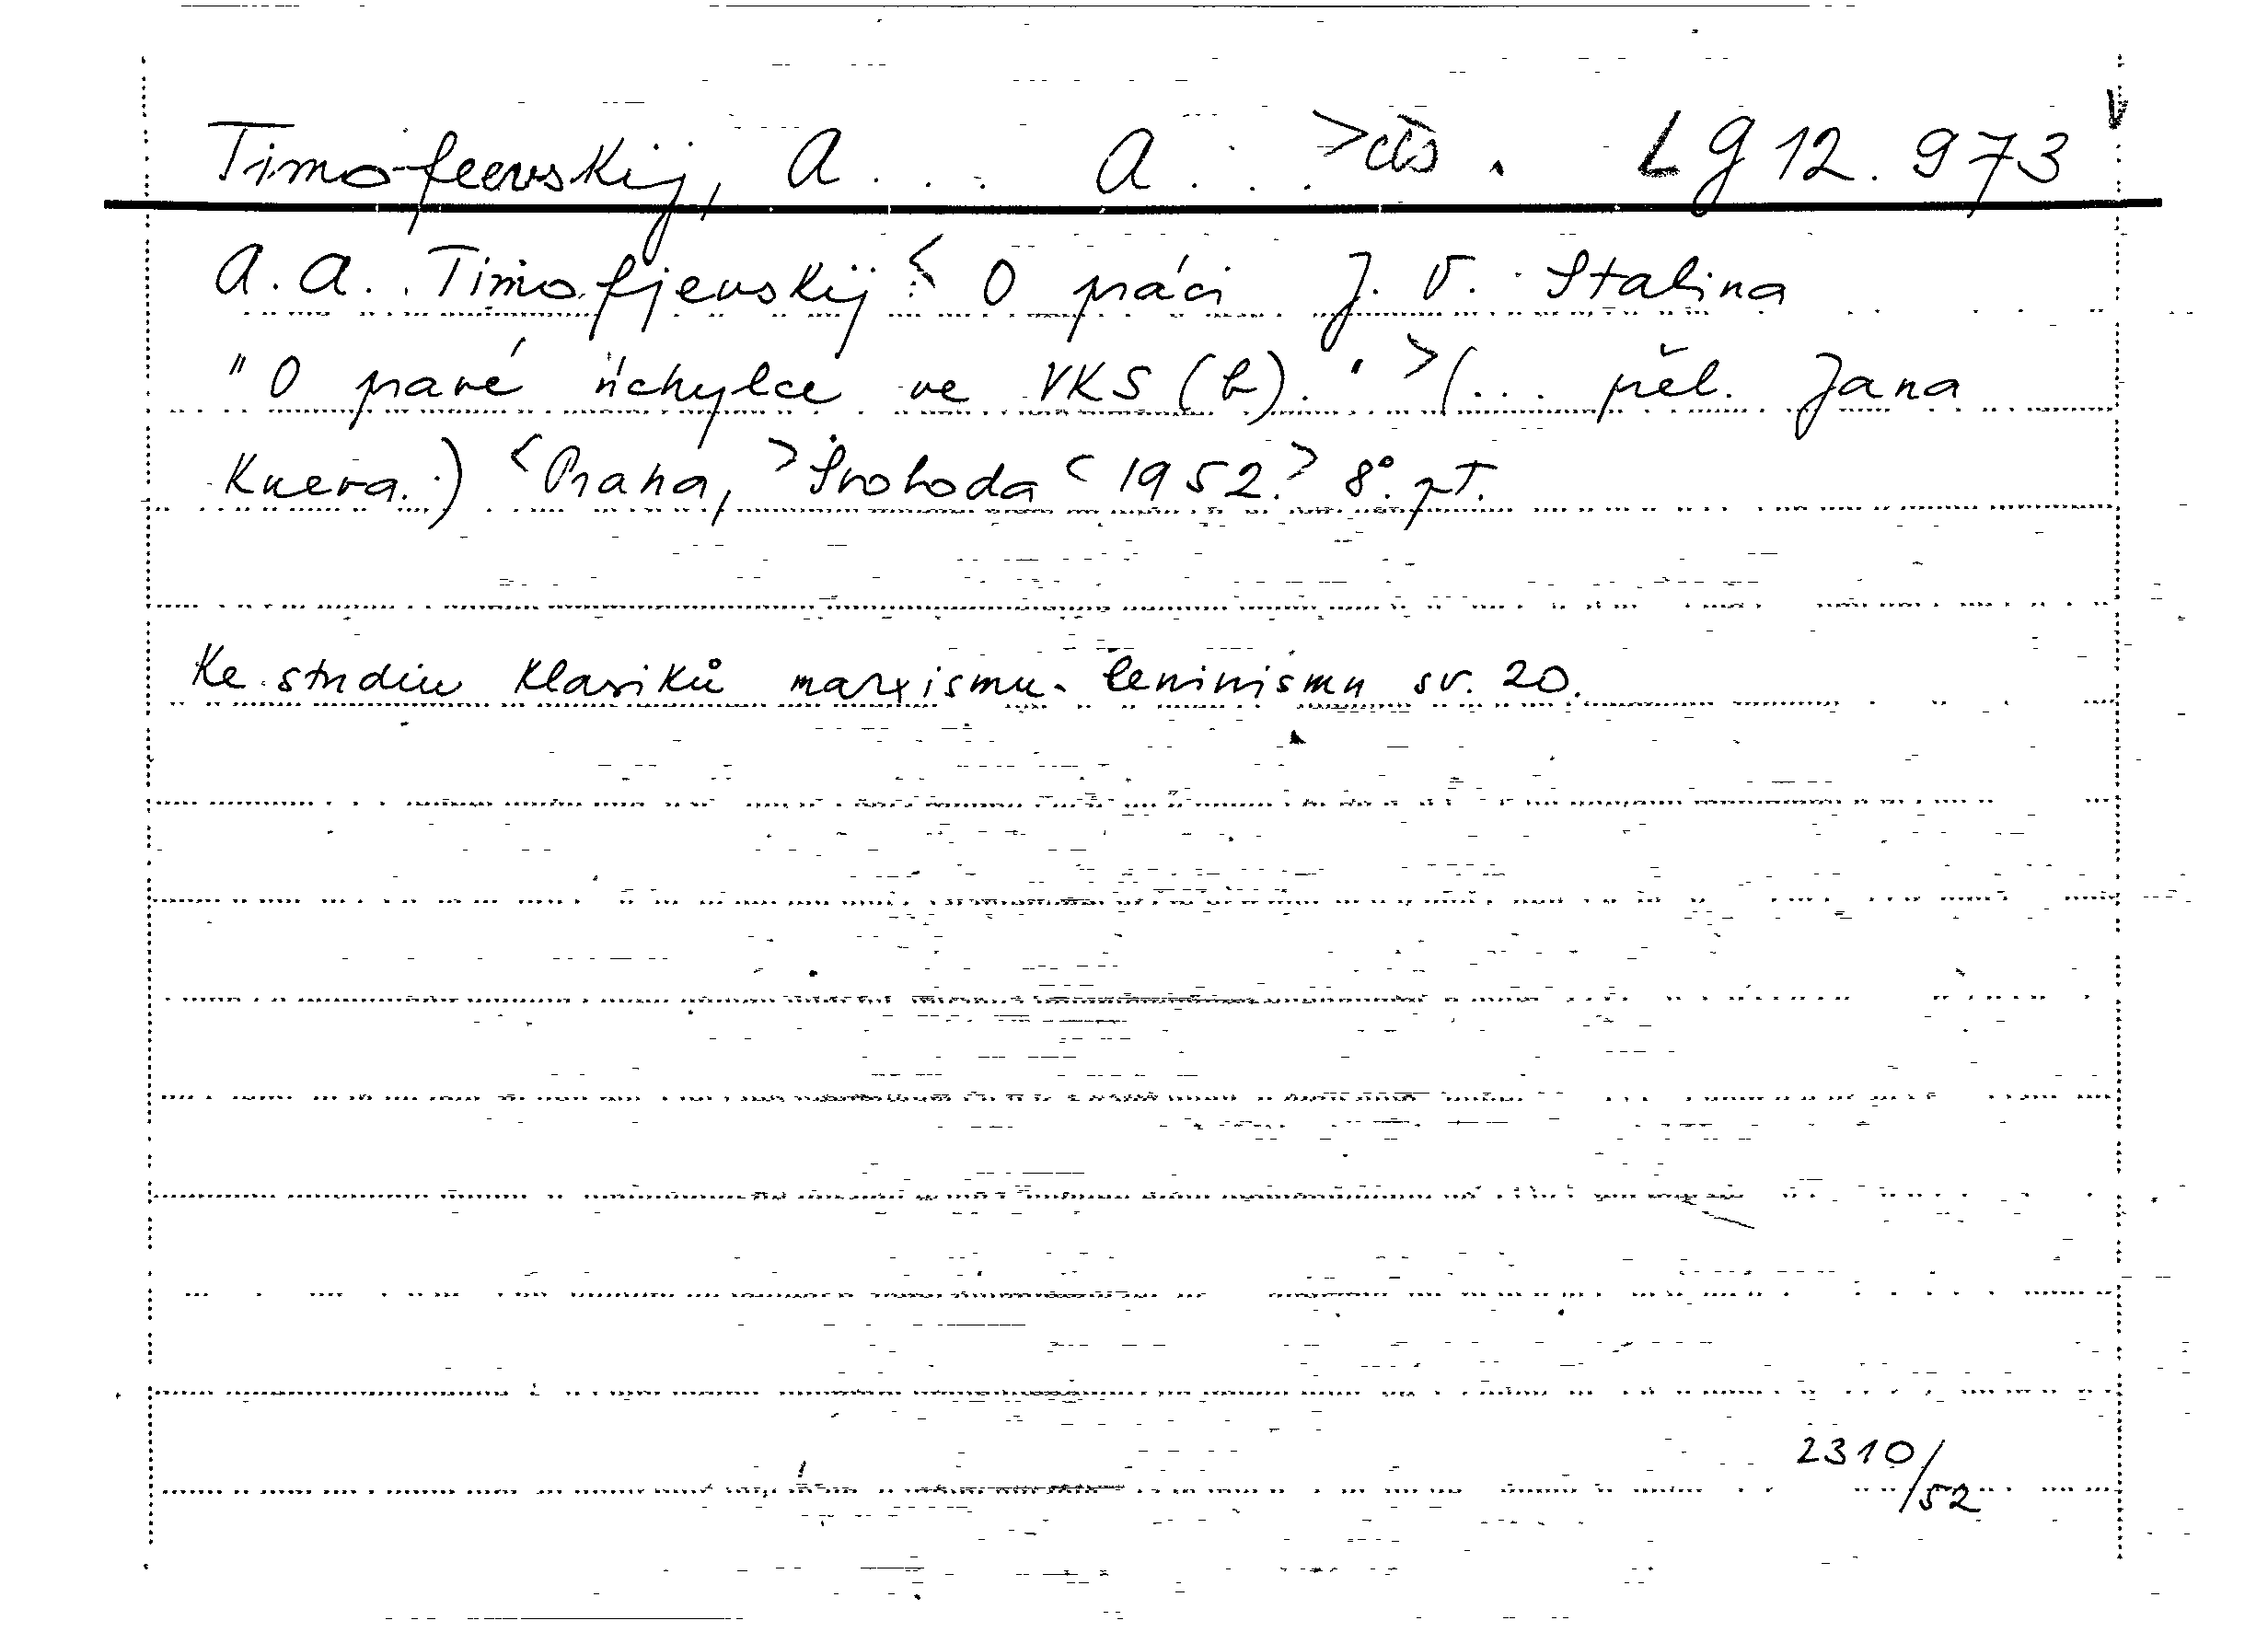 Timofeevskij, A... A... >čís. Lg 12.973
A. A. Timofjevskij < O práci J. V. Stalina
"O pravé úchylce ve VKS (b)." >(... přel. Jana
Kuera.) <Praha, >Svoboda <1952.> 8°. pt.
Ke studiu klasiků marxismu-leninismu sv. 20.
2310/52